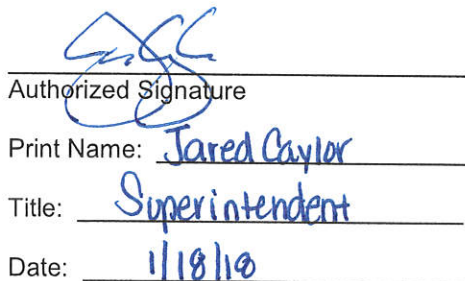 Authorized Signature
Print Name: Jared Caylor
Title: Superintendent
Date: 1/18/18